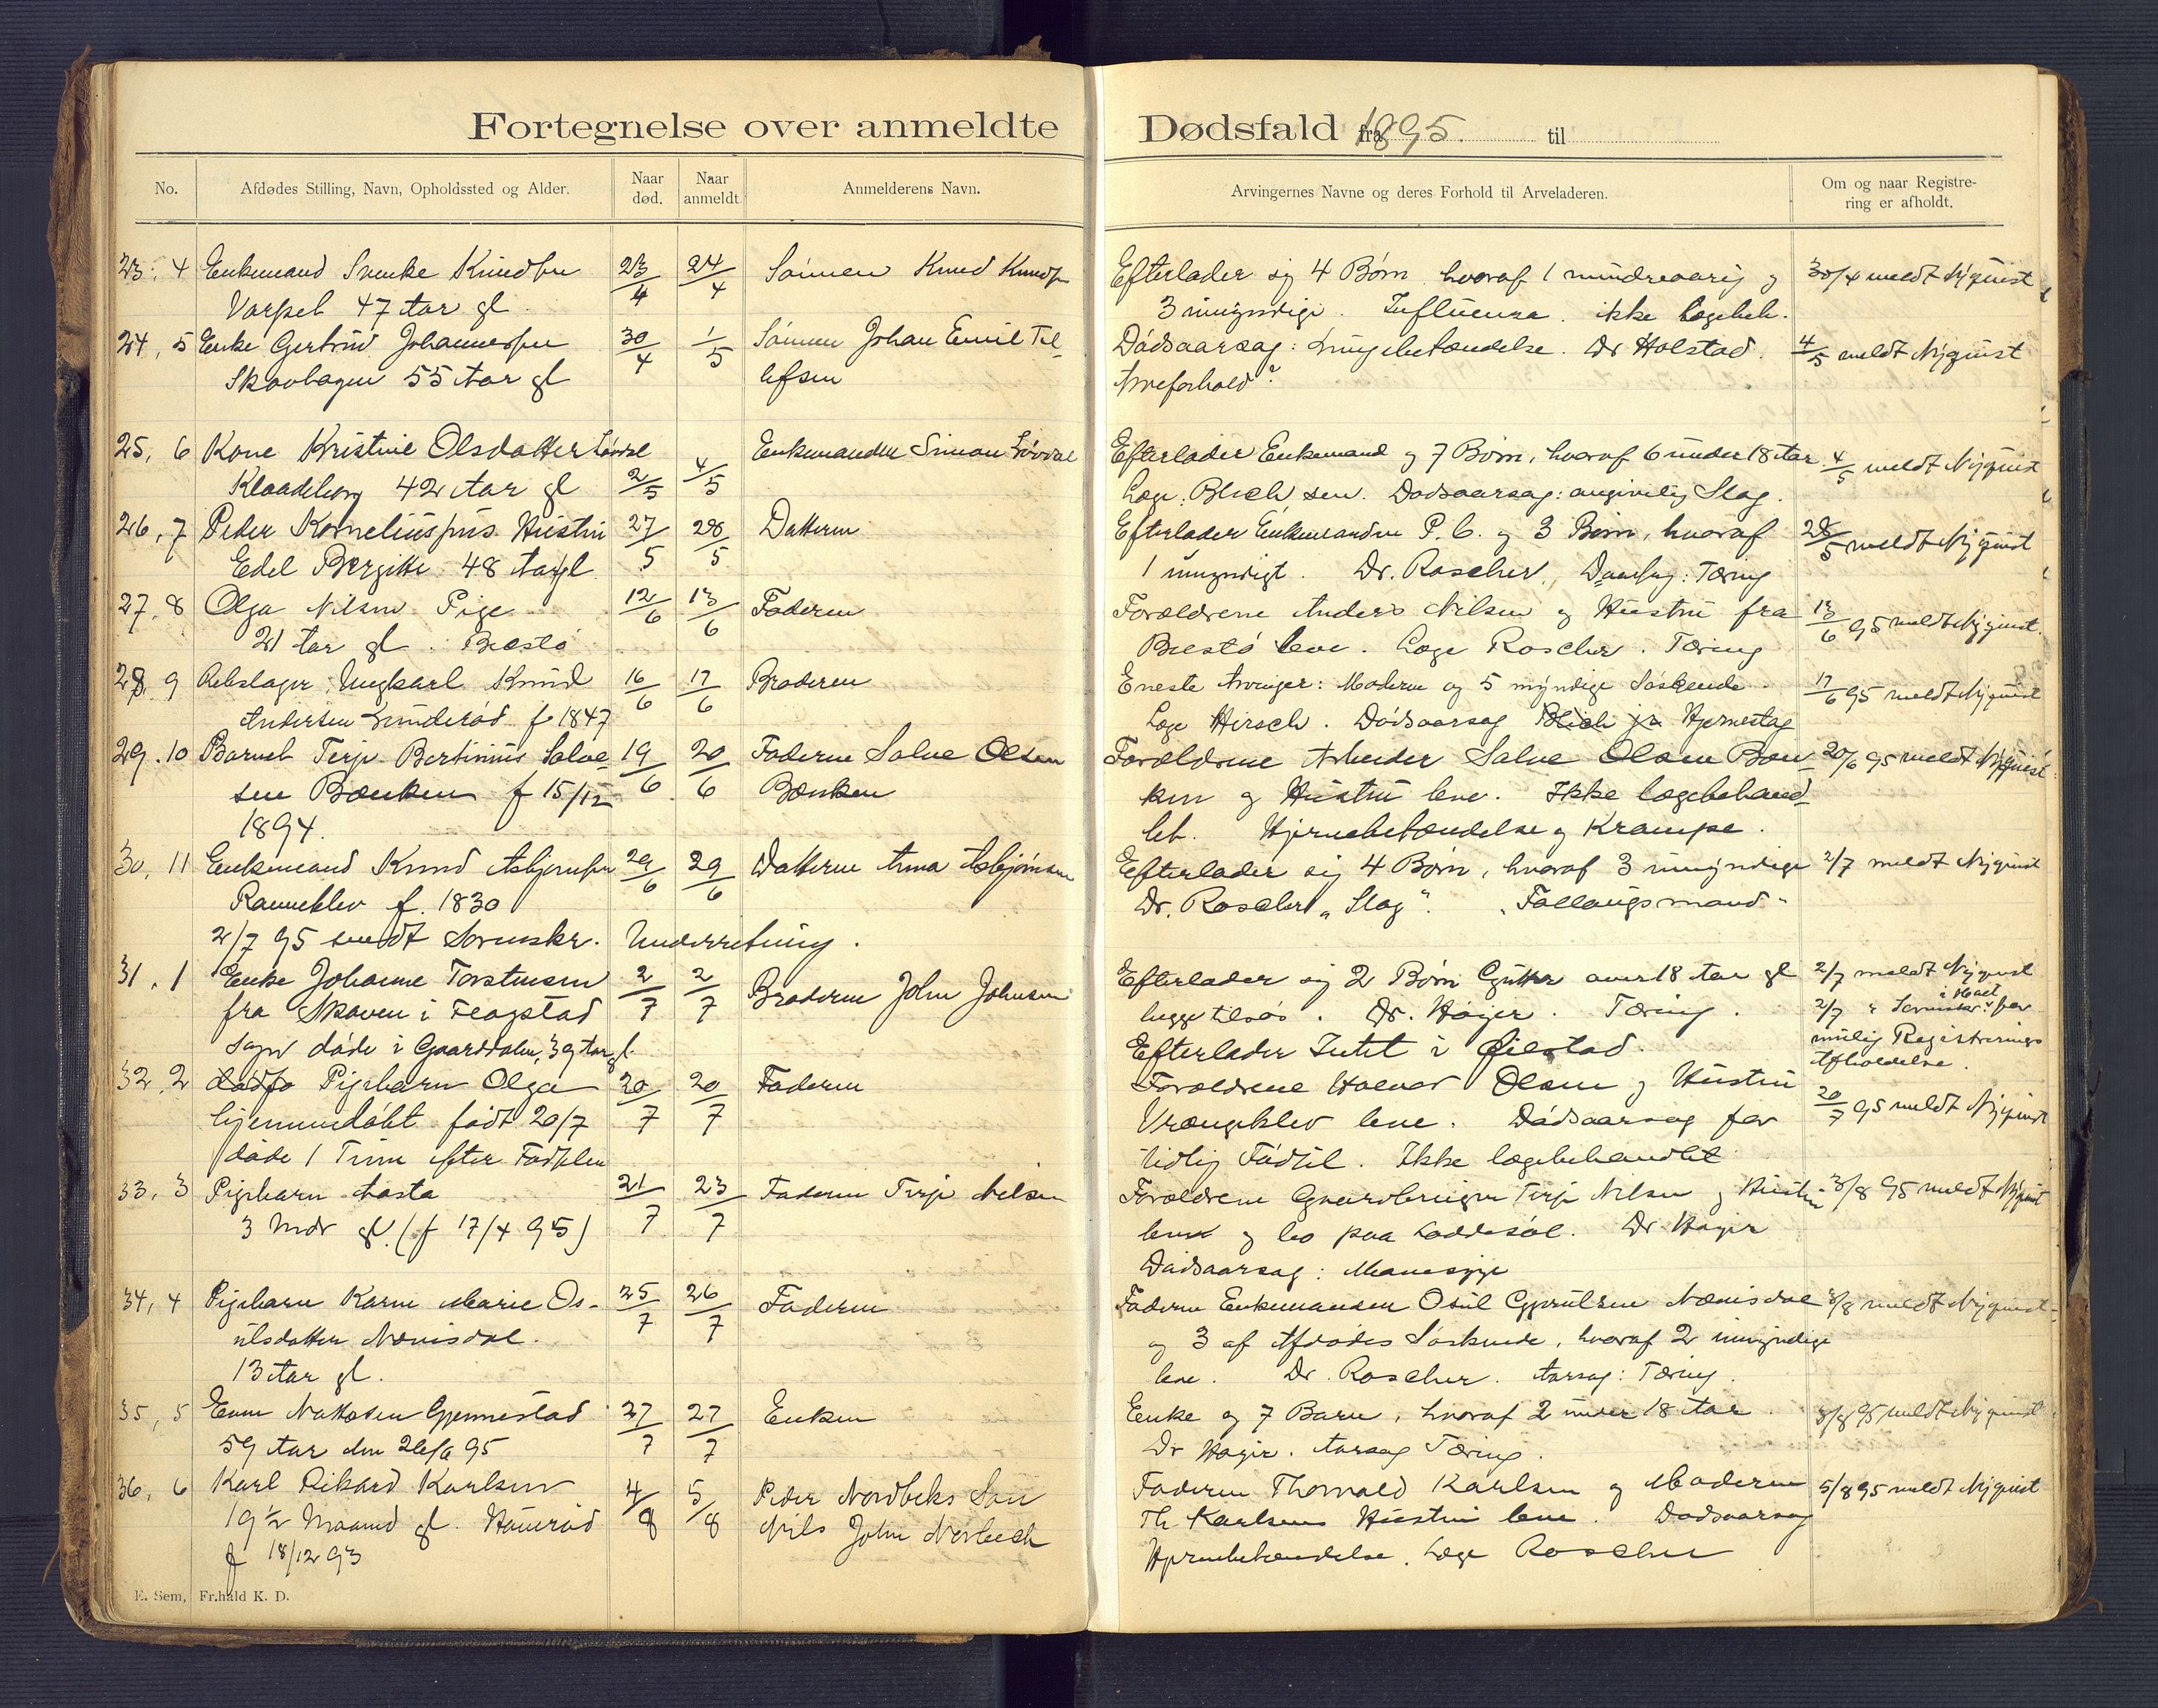 Fortegnelse over anmeldte Dødsfald fra 1895. til
No.
Afdødes Stilling, Navn, Opholdssted og Alder.
Naar død.
Naar anmeldt.
Anmelderens Navn.
Arvingernes Navne og deres Forhold til Arveladeren.
Om og naar Registrering er afholdt.
23, 4 Enkemand Svenke Knudsen 23/4 24/4 Sønnen Knud Knuds Efterlader sig 4 Børn hvoraf 1 mindreaarig og 30/4 meldt Nyquist
47 Aar gl. 3 umyndige. Influenza. ikke lægebeh.
24, 5 Enke Gertrud Johannessen 30/4 1/5 Sønnen Johan Emil Tel- Dødsaarsag: Lungebetændelse. Dr Holstad. 4/5 meldt Nyquist
Skovhagen 55 Aar gl lefsen Arveforhold?
25, 6 Kone Kristine Olsdatter Løvdal 2/5 4/5 Enkemanden Simon Løvdal Efterlader Enkemand og 7 Børn, hvoraf 6 under 18 Aar 4/5 meldt Nyquist
Klaadeborg 42 Aar gl Læge Blich sen. Dødsaarsag: angivelig Slag.
26, 7 Peder Korneliussens Hustru 27/5 28/5 Datteren Efterlader Enkemanden P. C. og 3 Børn, hvoraf 28/5 meldt Nyquist
Edel Bergitte 48 Aar gl. 1 umyndigt. Dr. Roscher. Daarsag: Tæring
27, 8 Olga Nilsen Pige 12/6 13/6 Faderen Forældrene Anders Nilsen og Hustru fra 13/6 95 meldt Nyquist.
21 Aar gl. Biestø Biestø leve. Læge Roscher. Tæring
28, 9 Rebslager, Ungkarl Knud 16/6 17/6 Broderen Eneste Arvinger: Moderen og 5 myndige Søskende. 17/6 95 meldt Nyquist
Andersen Lunderød f 1847 Læge Hirsch. Dødsaarsag Blich jr Hjerneslag
29, 10 Barnet Terje Bertinius Salve- 19/6 20/6 Faderen Salve Olsen Forældrene Arbeider Salve Olsen Bæn- 20/6 95 meldt Nyquist
sen Bænken f 15/12 Bænken ken og Hustru leve. Ikke lægebehand-
1894. let. Hjernebetændelse og Krampe.
30, 11 Enkemand Knud Asbjørnsen 29/6 29/6 Datteren Anna Asbjørnsen Efterlader sig 4 Børn, hvoraf 3 umyndige 2/7 meldt Nyquist
Ranneklev f. 1830 Dr. Roscher "Slag". "Fallougsmand"
2/7 95 sendt Sorenskr. Underretning.
31, 1 Enke Johanne Torstensen 2/7 2/7 Broderen John Johnsen Efterlader sig 2 Børn Gutter over 18 Aar gl 2/7 meldt Nyquist
fra Skoven i Flagstad begge tilsøs. Dr. Høyer. Tæring. 2/7 " Sorenskr. i Hast for
Sogn døde i Gaarddalen, 39 Aar gl. Efterlader Intet i Øiestad. mulig Registrerings
Afholdelse.
32, 2 dødfø Pigebarn Olga 20/7 20/7 Faderen Forældrene Halvor Olsen og Hustru 20/7 95 meldt Nyquist
hjemmedøbt født 20/7 Vrængeklev leve. Dødsaarsag for
døde 1 Time efter Fødselen tidlig Fødsel. Ikke lægebehandlet
33, 3 Pigebarn Aasta 21/7 23/7 Faderen Terje Nilsen Forældrene Gaardbruger Terje Nilsen og Hustru 3/8 95 meldt Nyquist
3 Mdr gl. (f 17/4 95) lever og bo paa Loddesøl. Dr Høyer
Dødsaarsag: Mavesyge
34, 4 Pigebarn Karen Marie Os- 25/7 26/7 Faderen Faderen Enkemanden Osul Gjeruldsen Nævisdal 3/8 meldt Nyquist
ulsdatter Nævisdal. og 3 af Afdødes Søskende, hvoraf 2 umyndige
13 Aar gl. leve. Dr. Roscher. Aarsag: Tæring.
35, 5 Nattesen Gjennestad 27/7 27/7 Enken Enke og 7 Barn, hvoraf 2 under 18 Aar. 3/8 95 meldt Nyquist
59 Aar den 26/6 95 Dr Høyer. Aarsag Tæring.
36, 6 Karl Rikard Karlsen 4/8 5/8 Peder Nordbeks Søn Faderen Thorvald Karlsen og Moderen 5/8 95 meldt Nyquist
19 1/2 Maaned gl. Naurød Nils John Norbech Th Karlsens Hustru leve. Dødsaarsag
f 18/12 93 Hjernebetændelse. Læge Roscher
E. Sem, Fr.hald K. D.